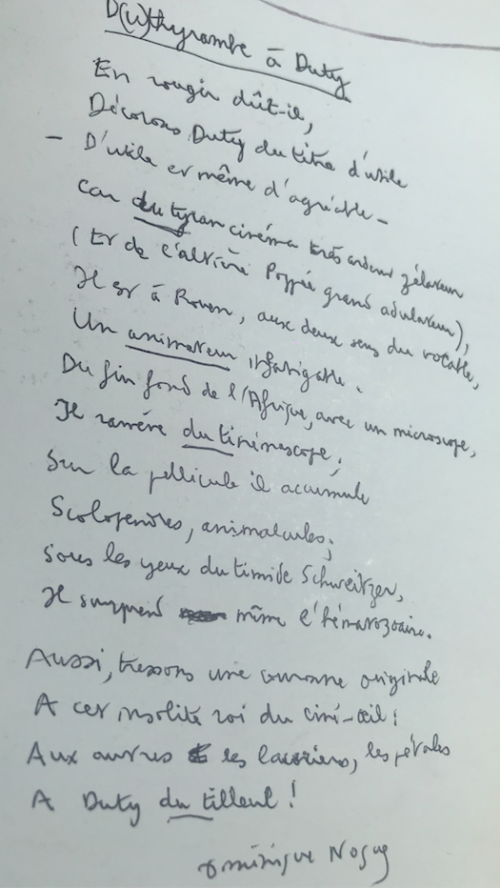 D(u)thyrambe à Duty
En rougir dût-il,
Décorons Duty du titre d'utile
— D'utile et même d'agréable —
Car du tyran cinéma très ardent zélateur
(Et de l'altière Poppée grand adulateur),
Il est à Rouen, aux deux sens du vocable,
Un animateur infatigable.
Du fin fond de l'Afrique, avec un microscope,
Il ramène du tinémascope ;
Sur la pellicule il accumule
Scolopendres, animalcules ;
Sous les yeux du timide Schweitzer,
Il surprend même l'hématozoaire.
Aussi, tressons une couronne originale
A cet insolite roi du ciné-œil :
Aux autres les lauriers, les pétales
A Duty du tilleul !
Dominique Noguez